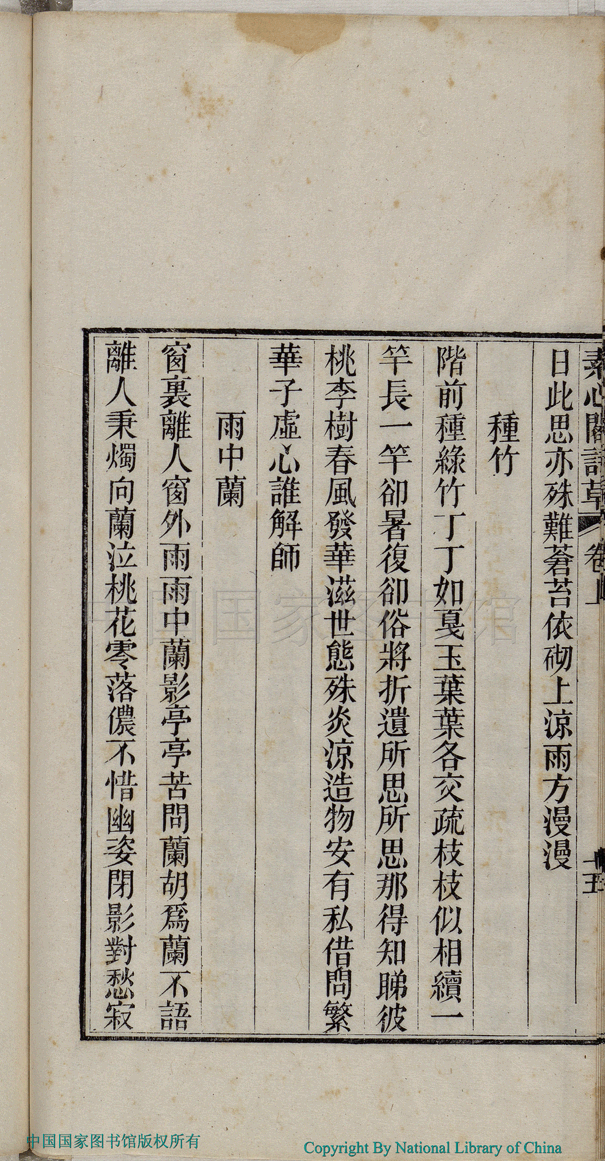 素心閣詩草 卷上 十五
日此思亦殊難蒼苔依砌上涼雨方漫漫
種竹
階前種綠竹丁丁如戛玉葉葉各交疏枝枝似相續一
竿長一竿卻暑復卻俗將折遺所思所思那得知睇彼
桃李樹春風發華滋世態殊炎涼造物安有私借問繁
華子虛心誰解師
雨中蘭
窗裏離人窗外雨雨中蘭影亭亭苦問蘭胡爲蘭不語
離人秉燭向蘭泣桃花零落儂不惜幽姿閉影對愁寂
中国国家图书馆
中国国家图书馆版权所有
Copyright By National Library of China